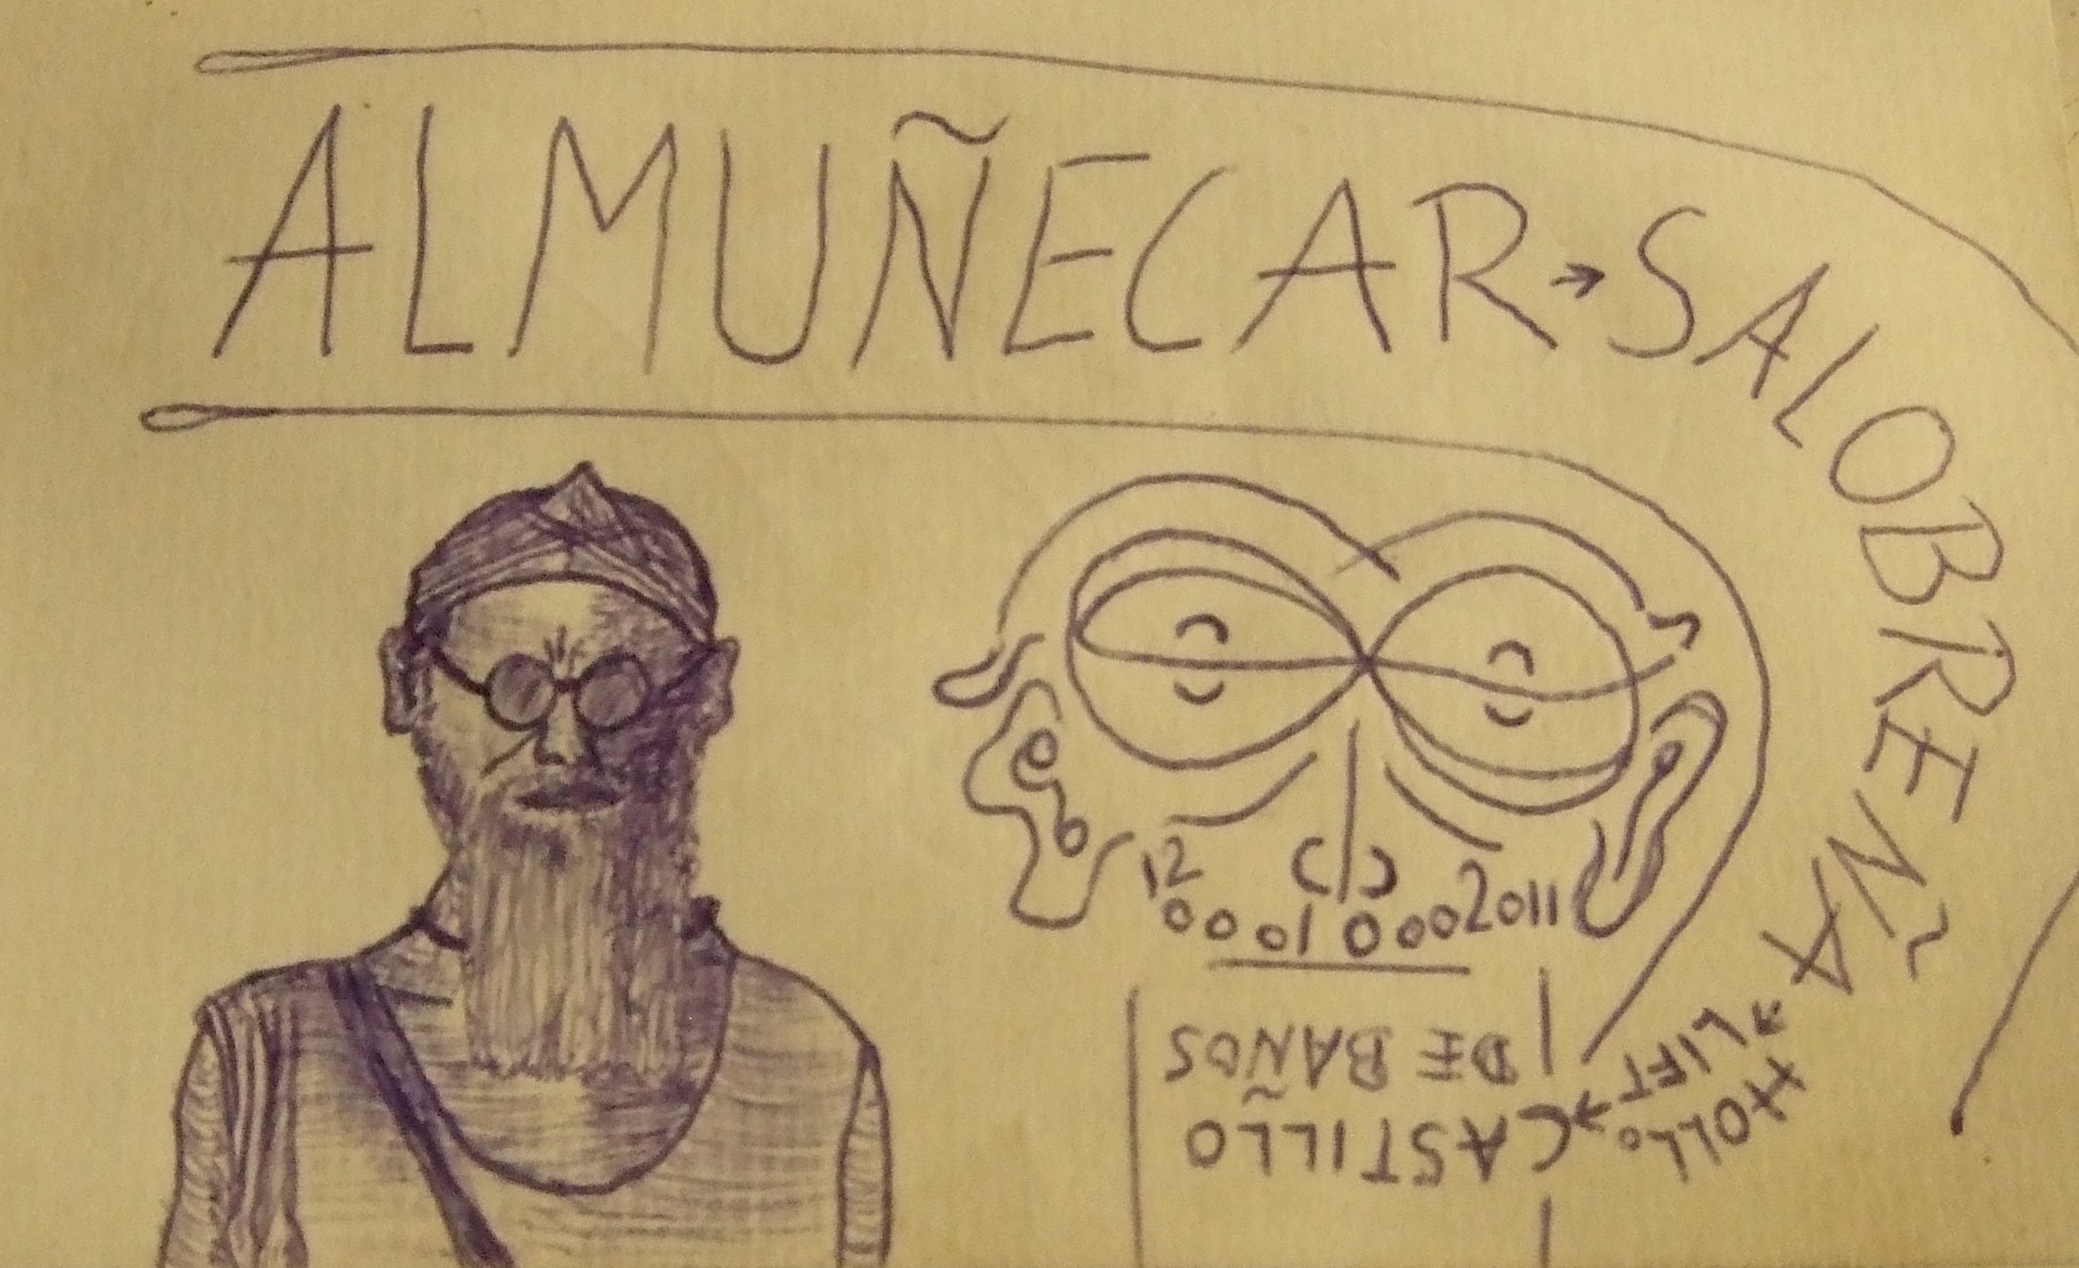 ALMUÑECAR→SALOBREÑA
→LIFT
→CASTILLO
DE BAÑOS
12 0001000 2011